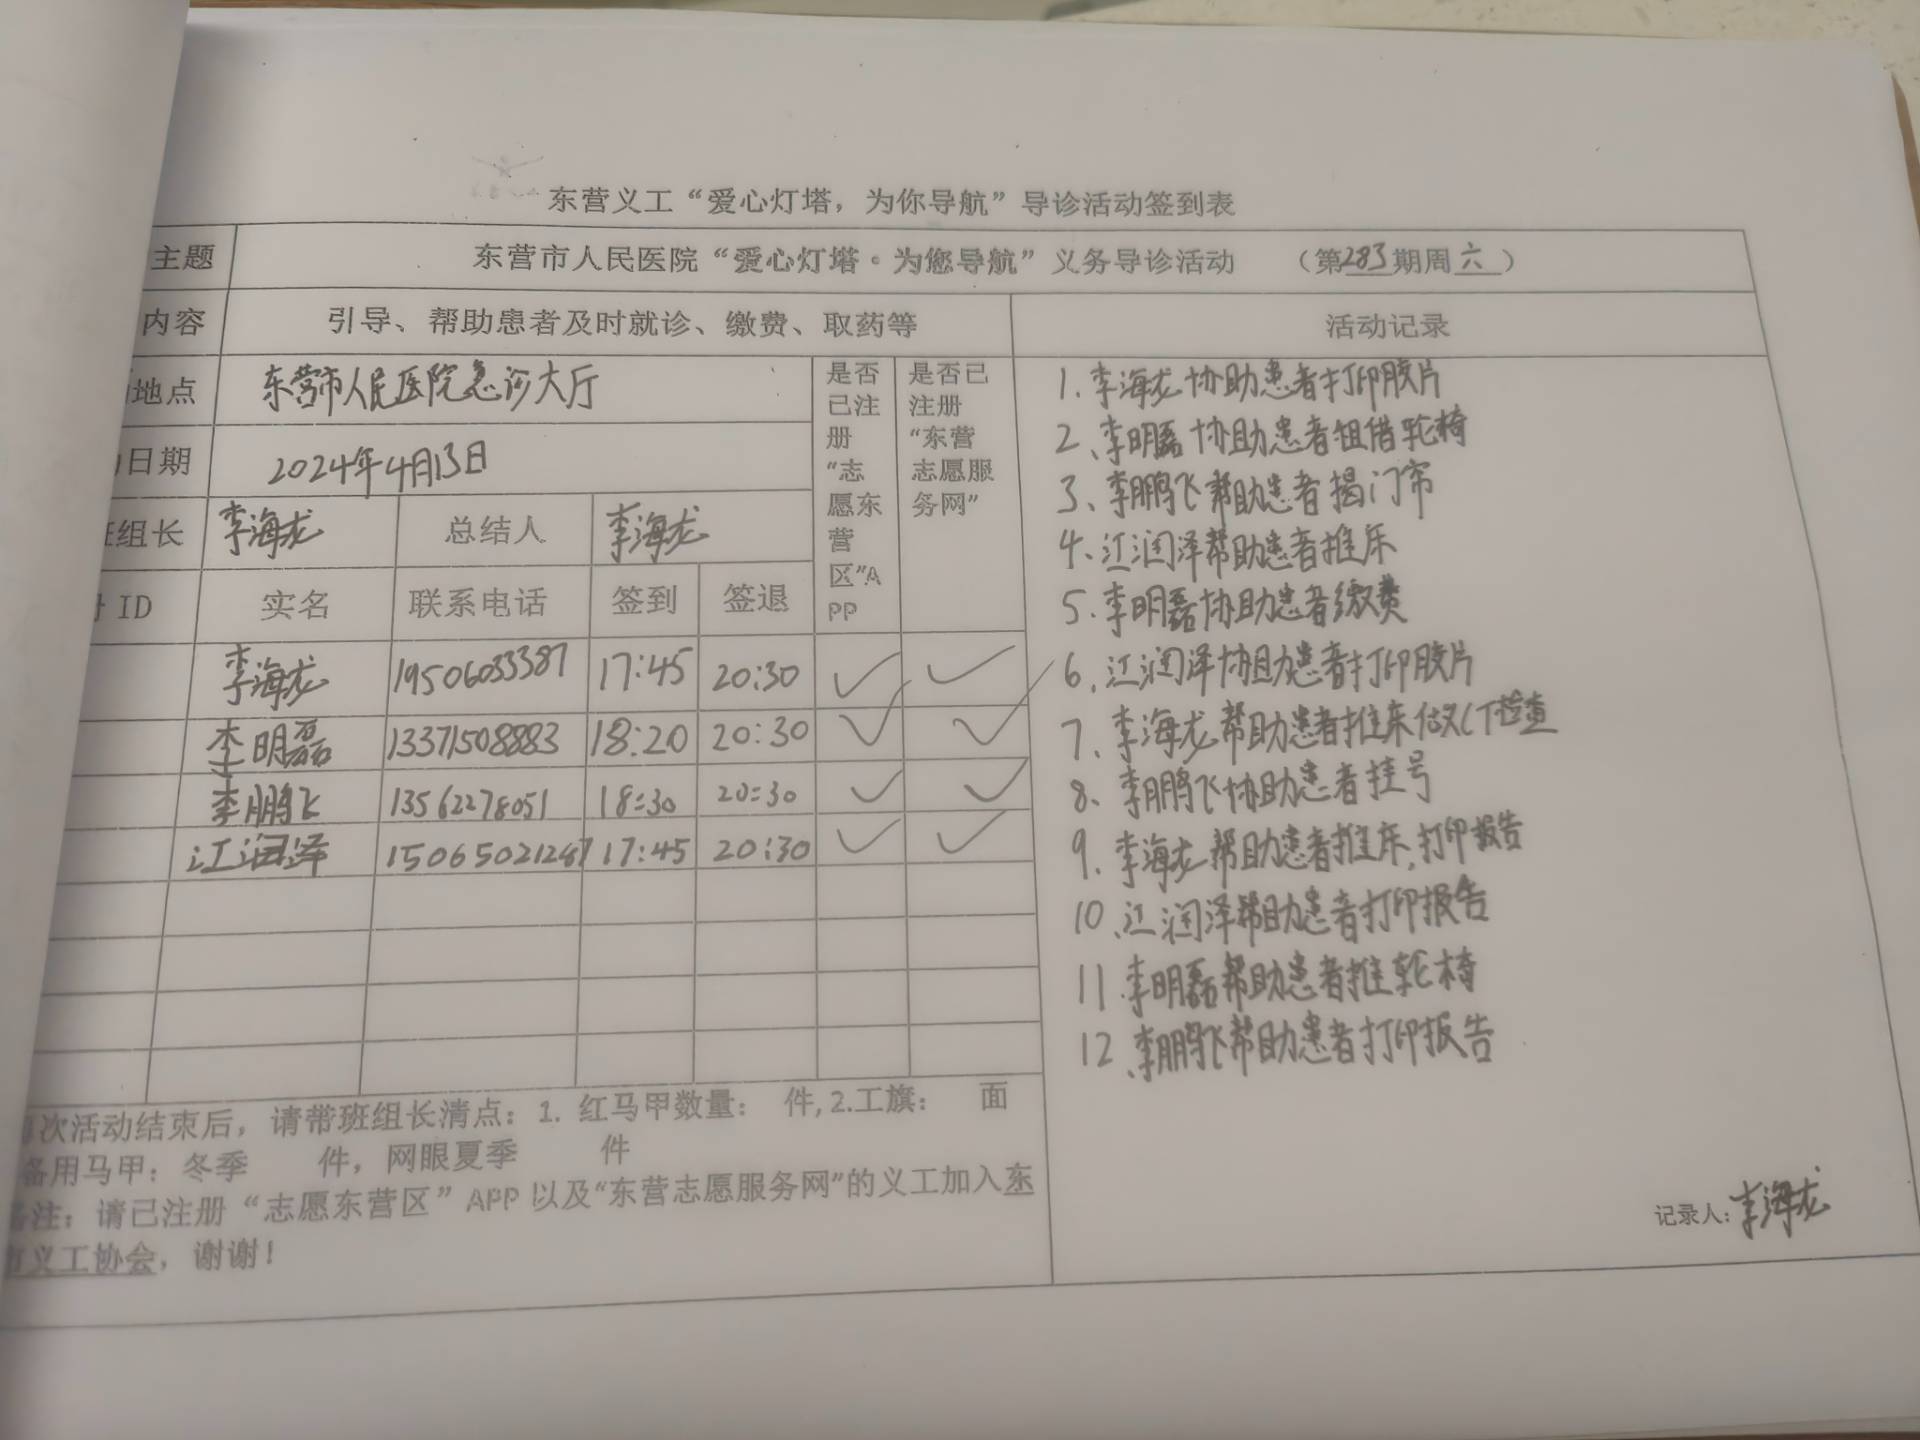 东营义工“爱心灯塔，为你导航”导诊活动签到表
主题 东营市人民医院“爱心灯塔·为您导航”义务导诊活动 （第283期周六）
内容 引导、帮助患者及时就诊、缴费、取药等 活动记录
地点 东营市人民医院急诊大厅
日期 2024年4月13日
组长 李海龙 总结人 李海龙
是否已注册“志愿东营区”APP
是否已注册“东营志愿服务网”
ID 实名 联系电话 签到 签退
李海龙 19506033387 17:45 20:30 ✓ ✓
李明磊 13371508883 18:20 20:30 ✓ ✓
李鹏飞 13562278051 18:30 20:30 ✓ ✓
江润泽 15065021247 17:45 20:30 ✓ ✓
1、李海龙协助患者打印胶片
2、李明磊协助患者租借轮椅
3、李鹏飞帮助患者揭门帘
4、江润泽帮助患者推床
5、李明磊协助患者缴费
6、江润泽协助患者打印胶片
7、李海龙帮助患者推床做CT检查
8、李鹏飞协助患者挂号
9、李海龙帮助患者推床,打印报告
10、江润泽帮助患者打印报告
11、李明磊帮助患者推轮椅
12、李鹏飞帮助患者打印报告
次活动结束后，请带班组长清点：1. 红马甲数量： 件, 2.工旗： 面
备用马甲：冬季 件，网眼夏季 件
注：请已注册“志愿东营区”APP 以及“东营志愿服务网”的义工加入东
市义工协会，谢谢！
记录人：李海龙